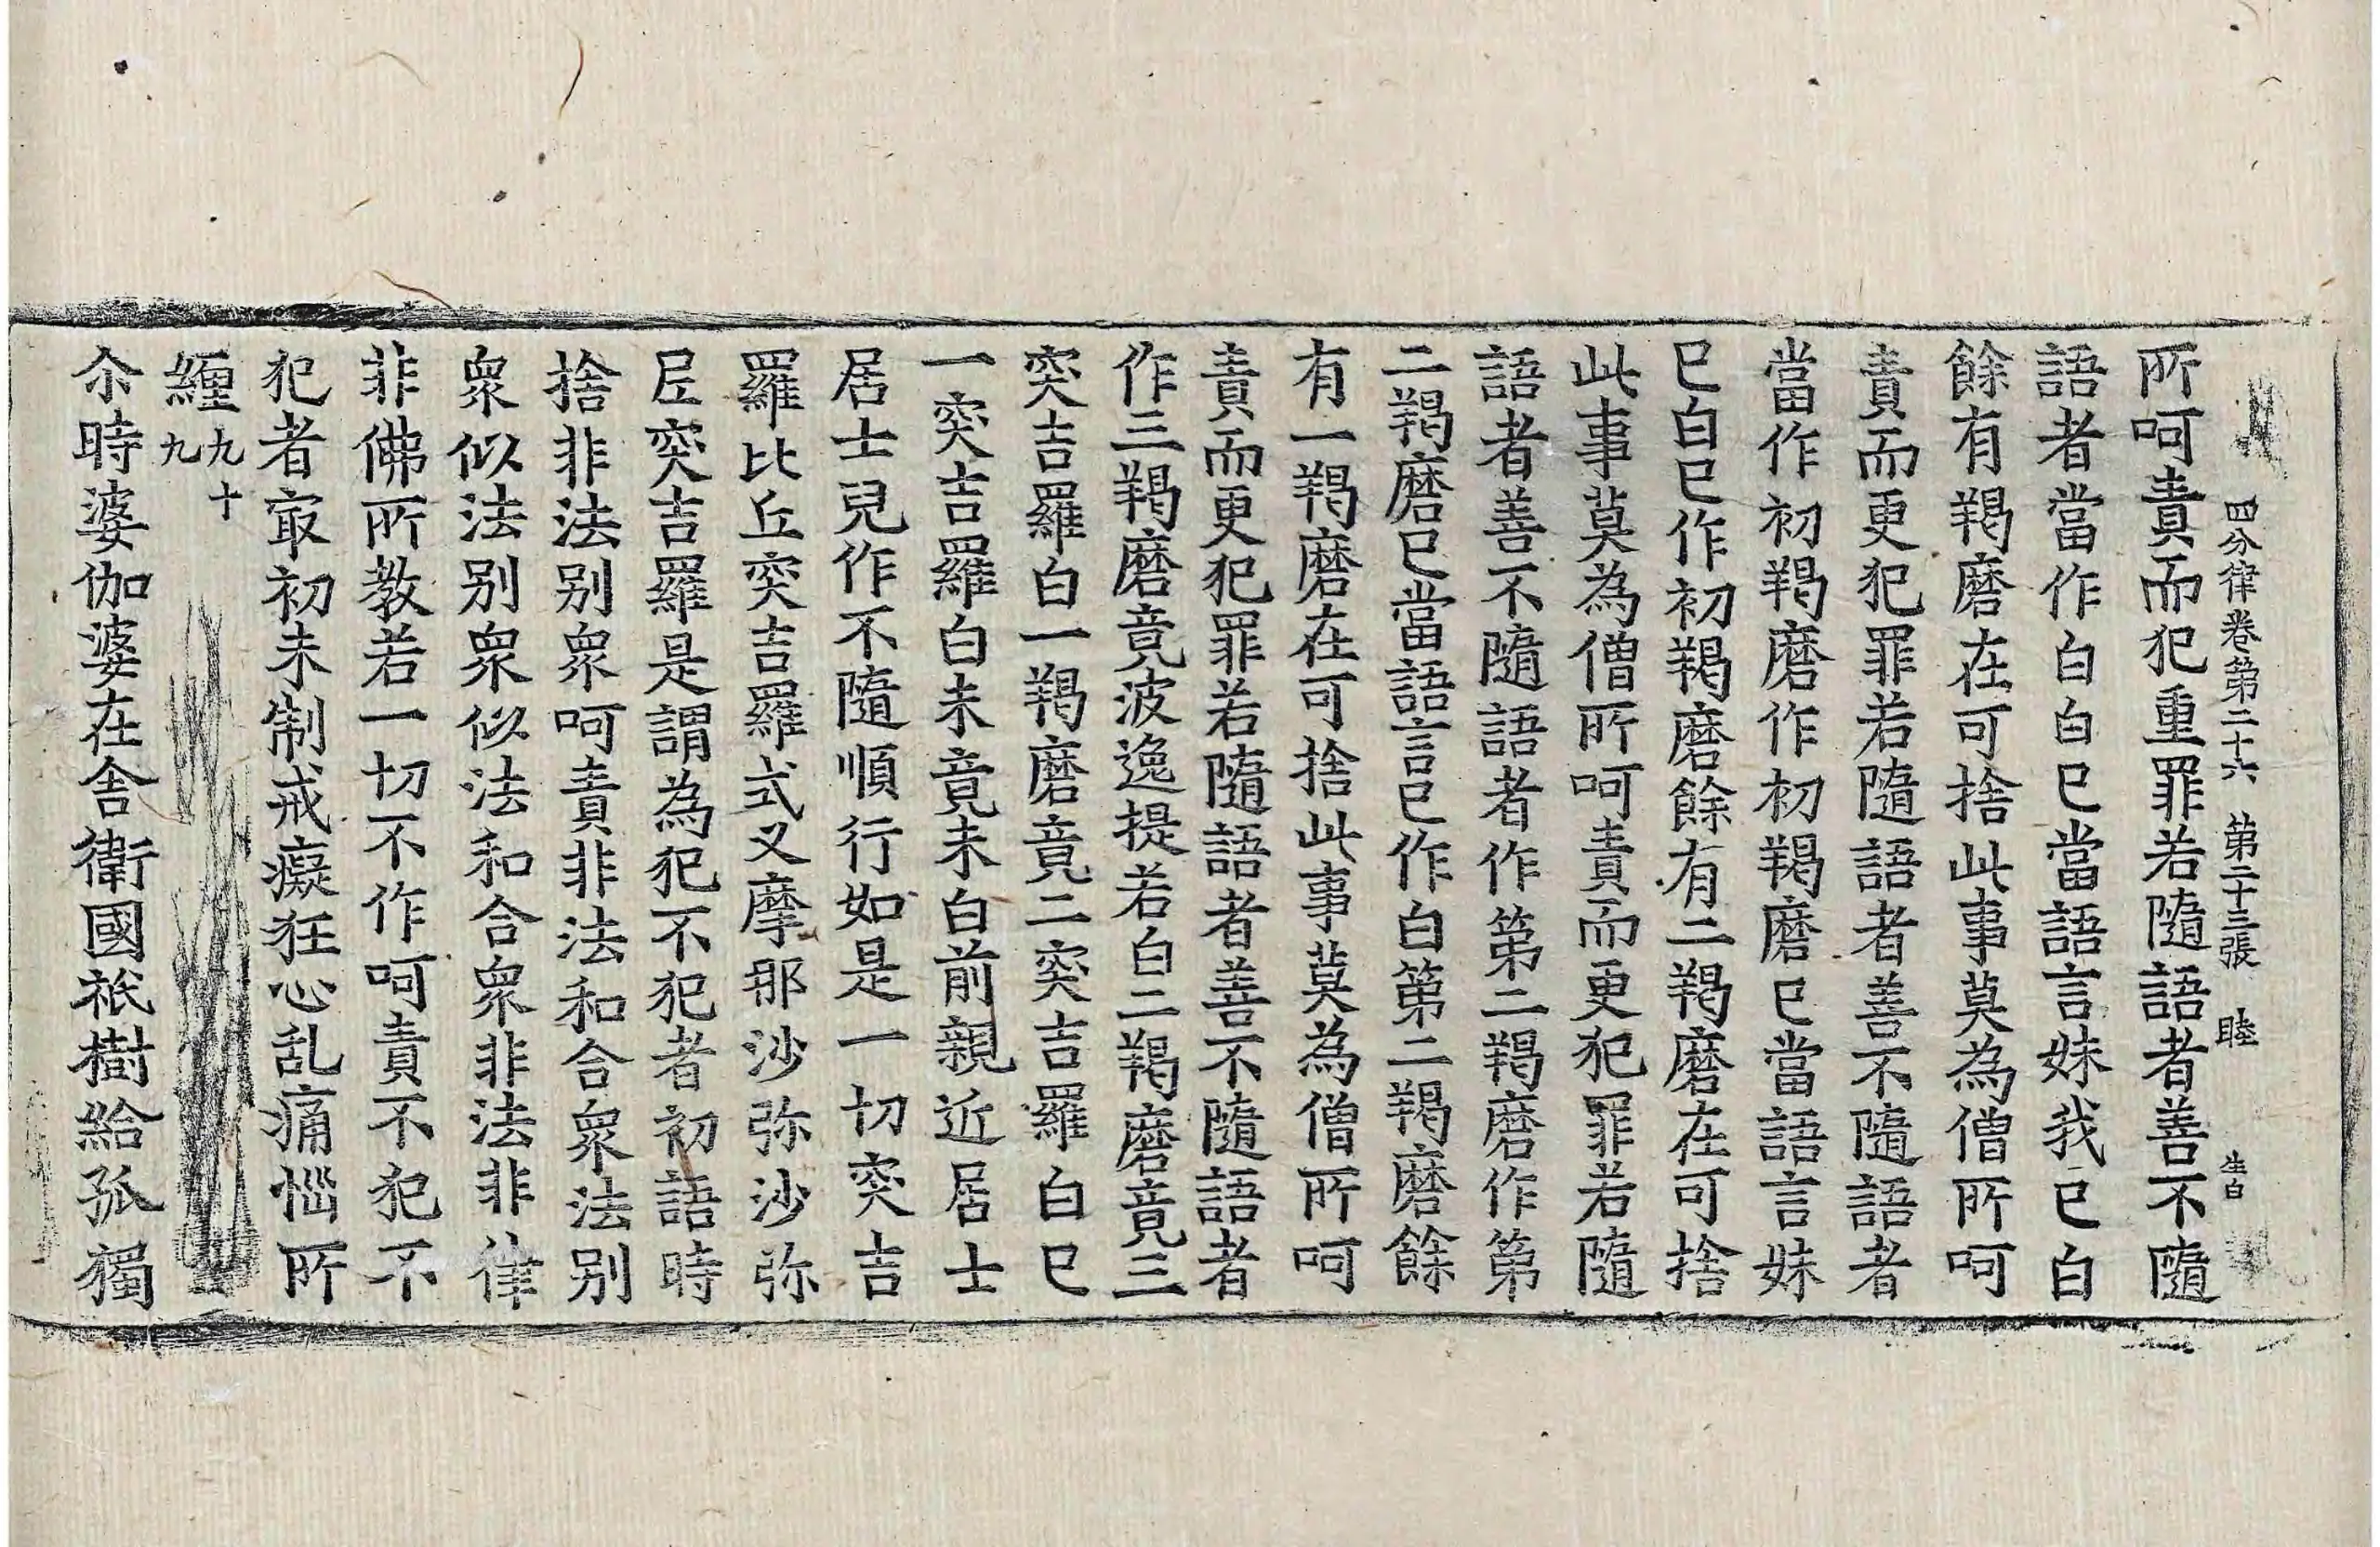 四分律卷第二十六 第二十三張 睦 生白
所呵責而犯重罪若隨語者善不隨
語者當作白白已當語言妹我已白
餘有羯磨在可捨此事莫為僧所呵
責而更犯罪若隨語者善不隨語者
當作初羯磨作初羯磨已當語言妹
已白已作初羯磨餘有二羯磨在可捨
此事莫為僧所呵責而更犯罪若隨
語者善不隨語者作第二羯磨作第
二羯磨已當語言已作白第二羯磨餘
有一羯磨在可捨此事莫為僧所呵
責而更犯罪若隨語者善不隨語者
作三羯磨竟波逸提若白二羯磨竟三
突吉羅白一羯磨竟二突吉羅白已
一突吉羅白未竟未白前親近居士
居士兒作不隨順行如是一切突吉
羅比丘突吉羅式叉摩那沙弥沙弥
尼突吉羅是謂為犯不犯者初語時
捨非法別眾呵責非法和合眾法別
眾似法別眾似法和合眾非法非律
非佛所教若一切不作呵責不犯不
犯者㝡初未制戒癡狂心乱痛惱所
纏九十九
尒時婆伽婆在舍衛國祇樹給孤獨